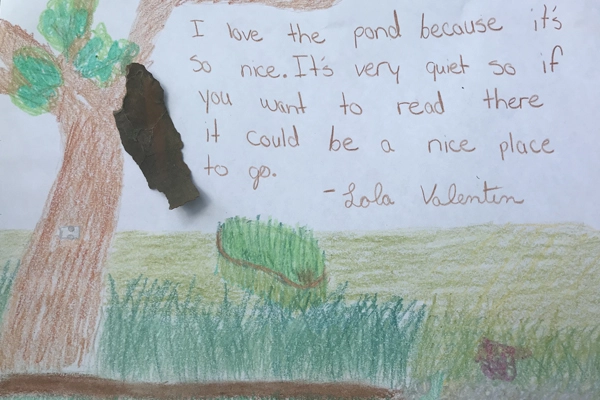 I love the pond because it's
so nice. It's very quiet so if
you want to read there
it could be a nice place
to go.
- Lola Valentin